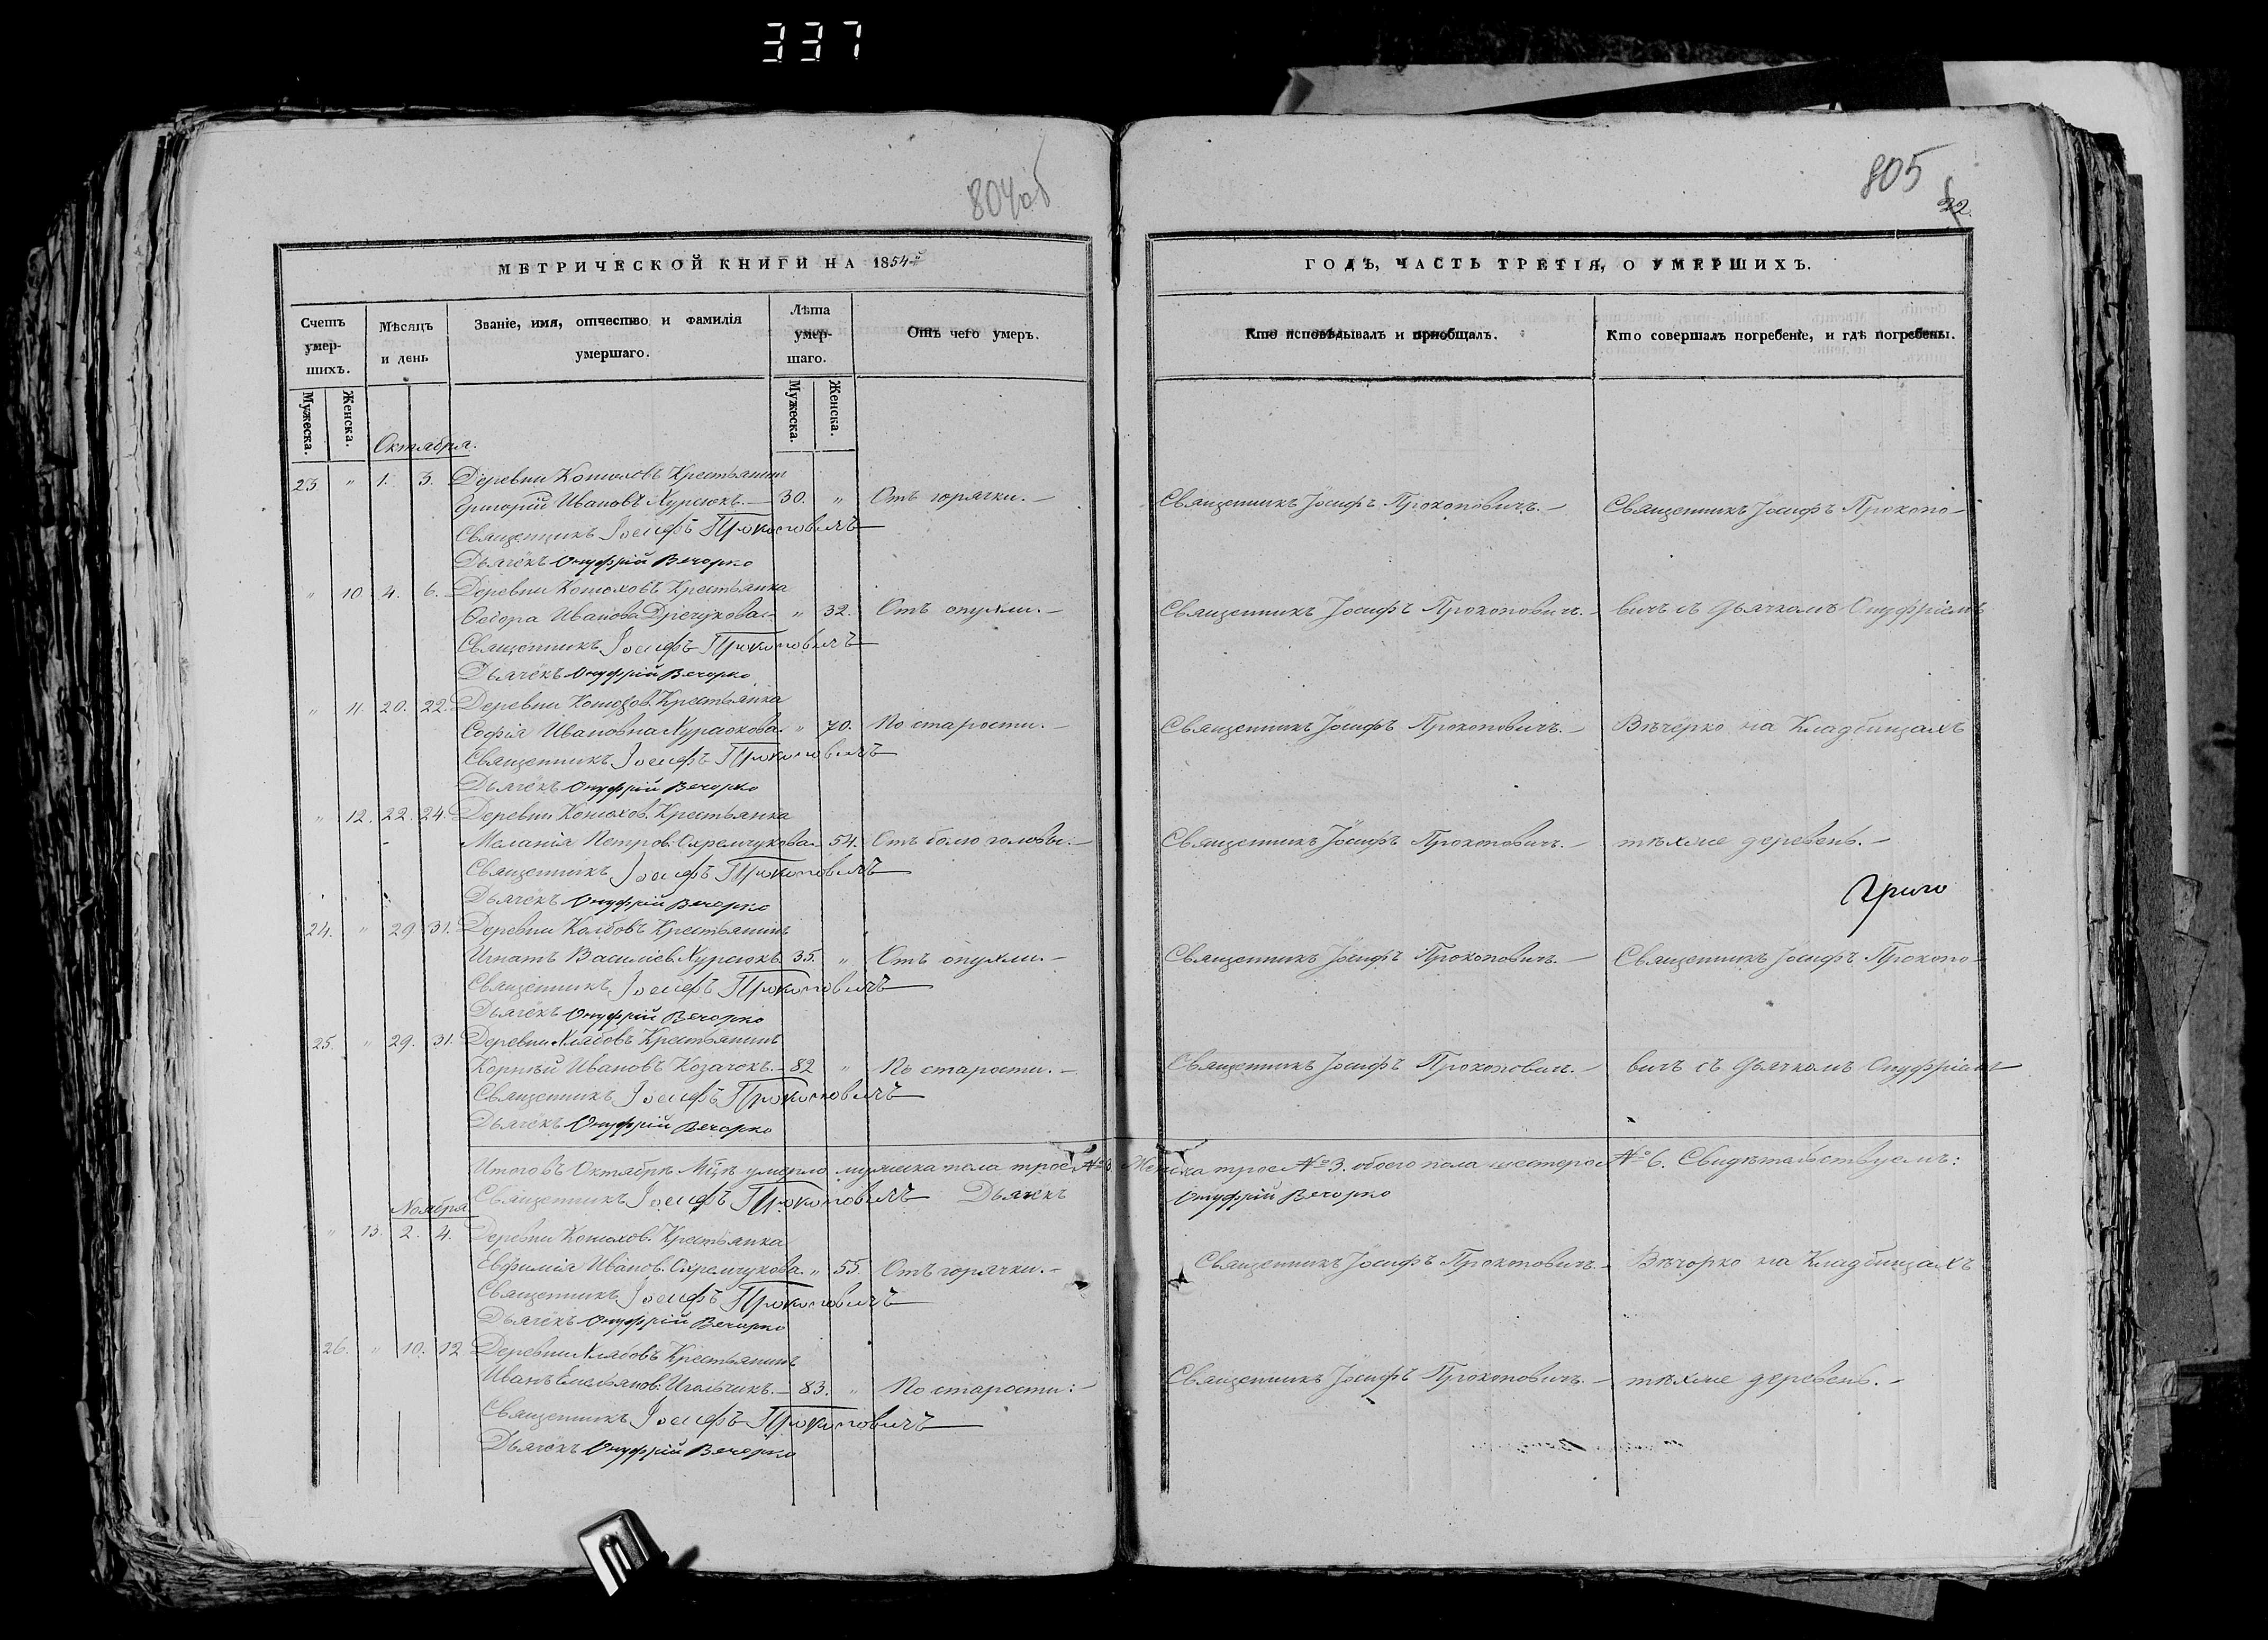 337
804об
805
22.
МЕТРИЧЕСКОЙ КНИГИ НА 1854й
Счетъ умер-шихъ.
Мѣсяцъ и день
Званіе, имя, отчество и фамилія умершаго.
Лѣта умер-шаго.
Отъ чего умеръ.
Мужеска.
Женска.
Мужеска.
Женска.
Октября.
23 " 1. 3. Деревни Крестьянин
Григорій Ивановъ Хурсюкъ. — 30. " Отъ горячки. —
Священникъ Іосифъ Прокоповичъ
Дьячёкъ Онуфрій Вечорко
" 10 4. 6. Деревни Конюховъ Крестьянка
Ѳедора Иванова " 32. Отъ опухли. —
Священникъ Іосифъ Прокоповичъ
Дьячёкъ Онуфрій Вечорко
" 11. 20. 22. Деревни Конюхов. Крестьянка
Софія Ивановна Хурсюкова. " 70. По старости. —
Священникъ Іосифъ Прокоповичъ
Дьячёкъ Онуфрій Вечорко
" 12. 22. 24. Деревни Конюхов. Крестьянка
Меланія Петров. Охремчукова 54. Отъ болю головы. —
Священникъ Іосифъ Прокоповичъ
Дьячёкъ Онуфрій Вечорко
24. " 29 31. Деревни Колбовъ Крестьянинъ
Игнатъ Василіев. Хурсюкъ 35. " Отъ опухли. —
Священникъ Іосифъ Прокоповичъ
Дьячёкъ Онуфрій Вечорко
25. " 29. 31. Деревни Крестьянинъ
Корнѣй Ивановъ Козачекъ. — 82 " По старости. —
Священникъ Іосифъ Прокоповичъ
Дьячёкъ Онуфрій Вечорко
Итого въ Октябрѣ Мцѣ умерло мужеска пола трое №3 Женска трое №3. обоего пола шестеро №6. Свидѣтельствуемъ:
Священникъ Іосифъ Прокоповичъ Дьячекъ Онуфрій Вечорко
Ноября
" 13. 2. 4. Деревни Конюхов. Крестьянка
Евфимія Иванов. Охремчукова. " 55 Отъ горячки. —
Священникъ Іосифъ Прокоповичъ
Дьячёкъ Онуфрій Вечорко
26. " 10. 12. Деревни Крестьянинъ
Иванъ Емельянов: Игольчикъ. — 83. " По старости: —
Священникъ Іосифъ Прокоповичъ
Дьячёкъ Онуфрій Вечорко
ГОДЪ, ЧАСТЬ ТРЕТІЯ, О УМЕРШИХЪ.
Кто исповѣдывалъ и пріобщалъ.
Кто совершалъ погребеніе, и гдѣ погребены.
Священникъ Іосифъ Прокоповичъ. — Священникъ Іосифъ Прокопо-
Священникъ Іосифъ Прокоповичъ. — вичъ съ Дьячкомъ Онуфріемъ
Священникъ Іосифъ Прокоповичъ. — Вѣчерко на Кладбищахъ
Священникъ Іосифъ Прокоповичъ. — тѣхже деревень. —
Священникъ Іосифъ Прокоповичъ. — Священникъ Іосифъ Прокопо-
Священникъ Іосифъ Прокоповичъ. — вичъ съ Дьячкомъ Онуфріемъ
Священникъ Іосифъ Прокоповичъ. — Вѣчорко на Кладбищахъ
Священникъ Іосифъ Прокоповичъ. — тѣхже деревень. —